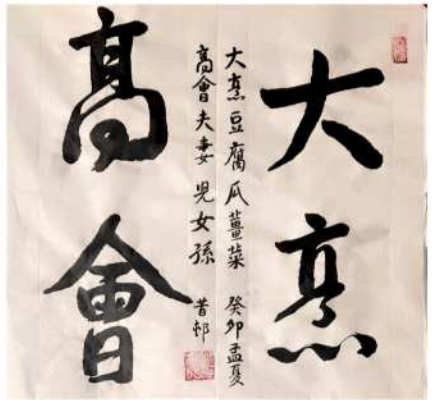 大烹
大烹豆腐瓜薑菜 癸卯孟夏
高會夫妻兒女孫 昔邨
高會